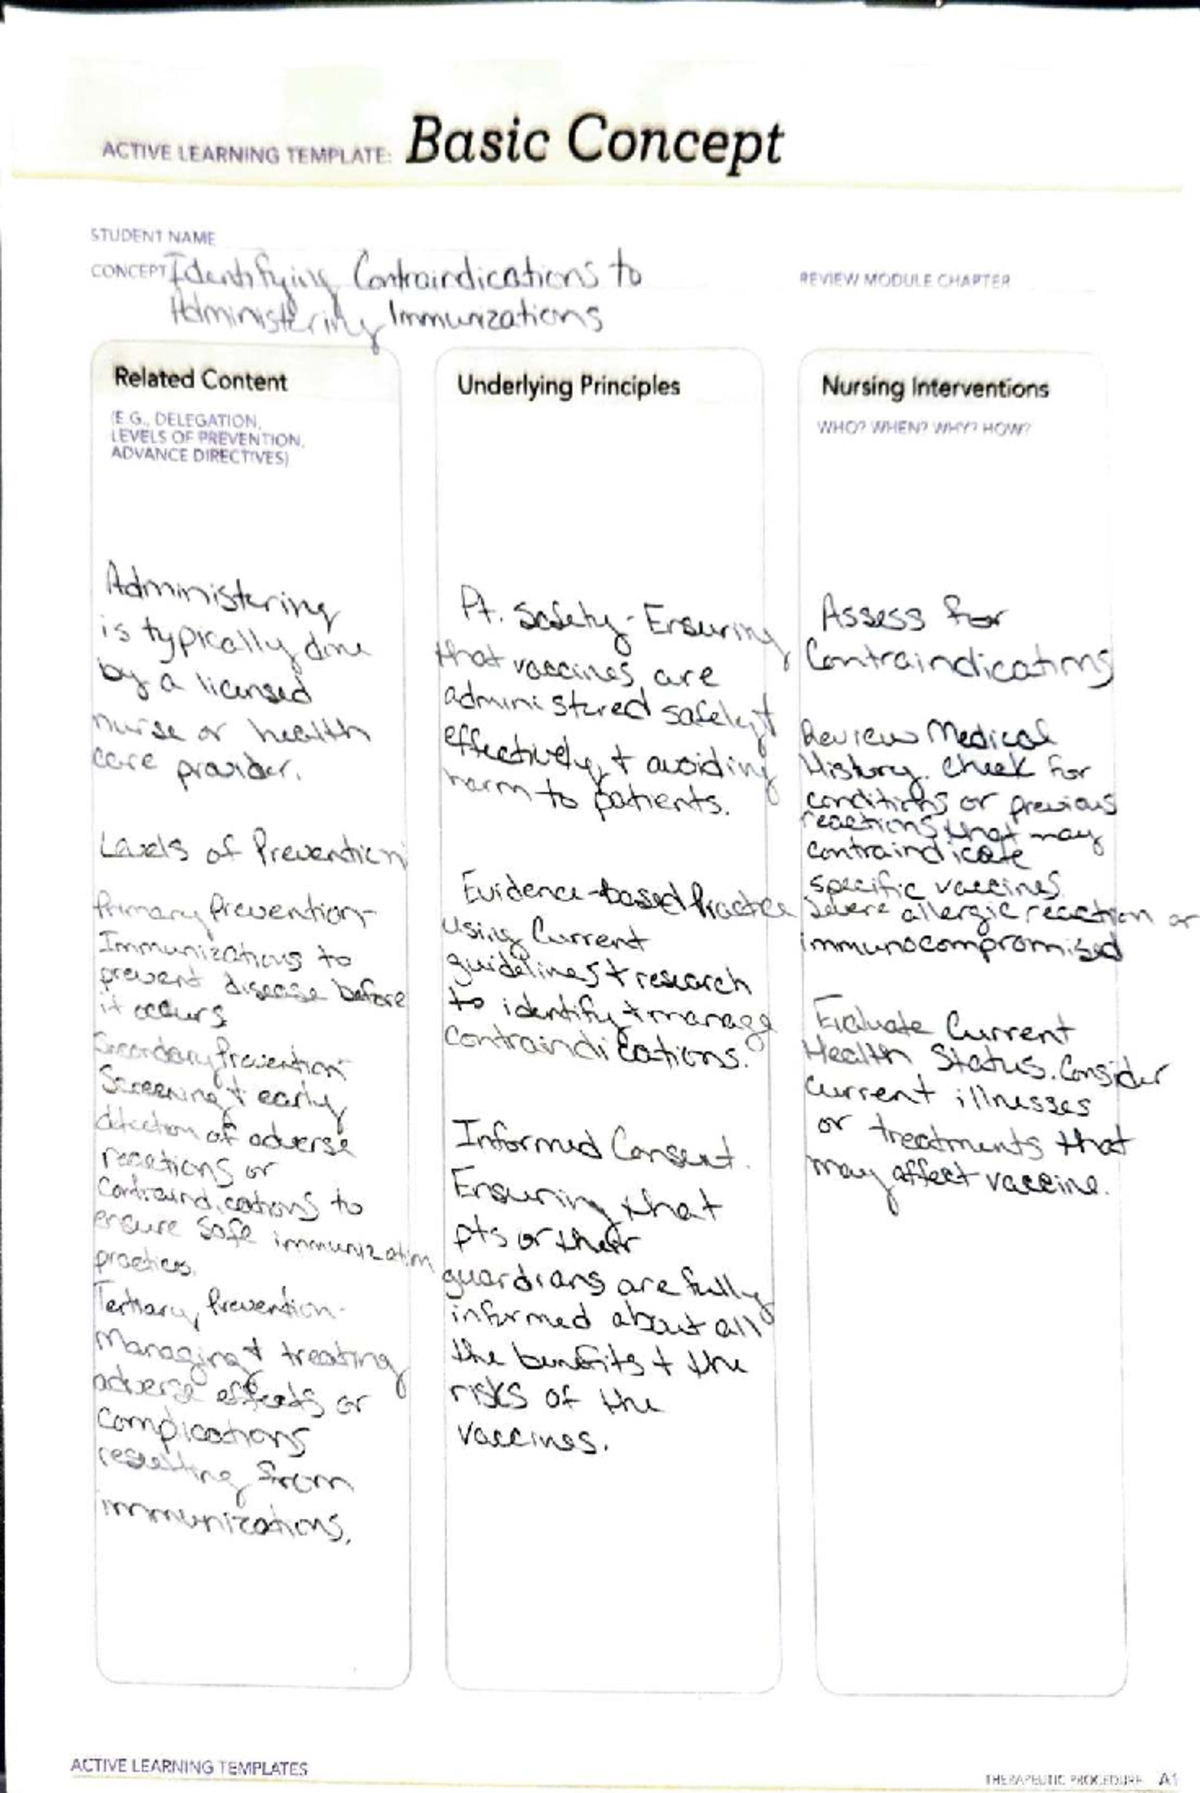 ACTIVE LEARNING TEMPLATE: Basic Concept
STUDENT NAME
CONCEPT Identifying Contraindications to
Administering Immunizations
REVIEW MODULE CHAPTER
Related Content
(E.G., DELEGATION,
LEVELS OF PREVENTION,
ADVANCE DIRECTIVES)
Administering
is typically done
by a licensed
nurse or health
care provider.
Levels of Prevention
Primary Prevention-
Immunizations to
prevent disease before
it occurs
Secondary Prevention-
Screening + early
detection of adverse
reactions or
Contraindications to
ensure safe immunization
practices.
Tertiary Prevention-
Managing + treating
adverse effects or
Complications
resulting from
immunizations.
Underlying Principles
Pt. Safety- Ensuring
that vaccines are
administered safely +
effectively, + avoiding
harm to patients.
Evidence-based Practice
using Current
guidelines + research
to identify + manage
contraindications.
Informed Consent.
Ensuring that
pts or their
guardians are fully
informed about all
the benefits + the
risks of the
vaccines.
Nursing Interventions
WHO? WHEN? WHY? HOW?
Assess for
Contraindications
Review Medical
History. Check for
conditions or previous
reactions that may
contraindicate
specific vaccines
Severe allergic reaction or
immunocompromised
Evaluate Current
Health Status. Consider
current illnesses
or treatments that
may affect vaccine.
ACTIVE LEARNING TEMPLATES
THERAPEUTIC PROCEDURE A1